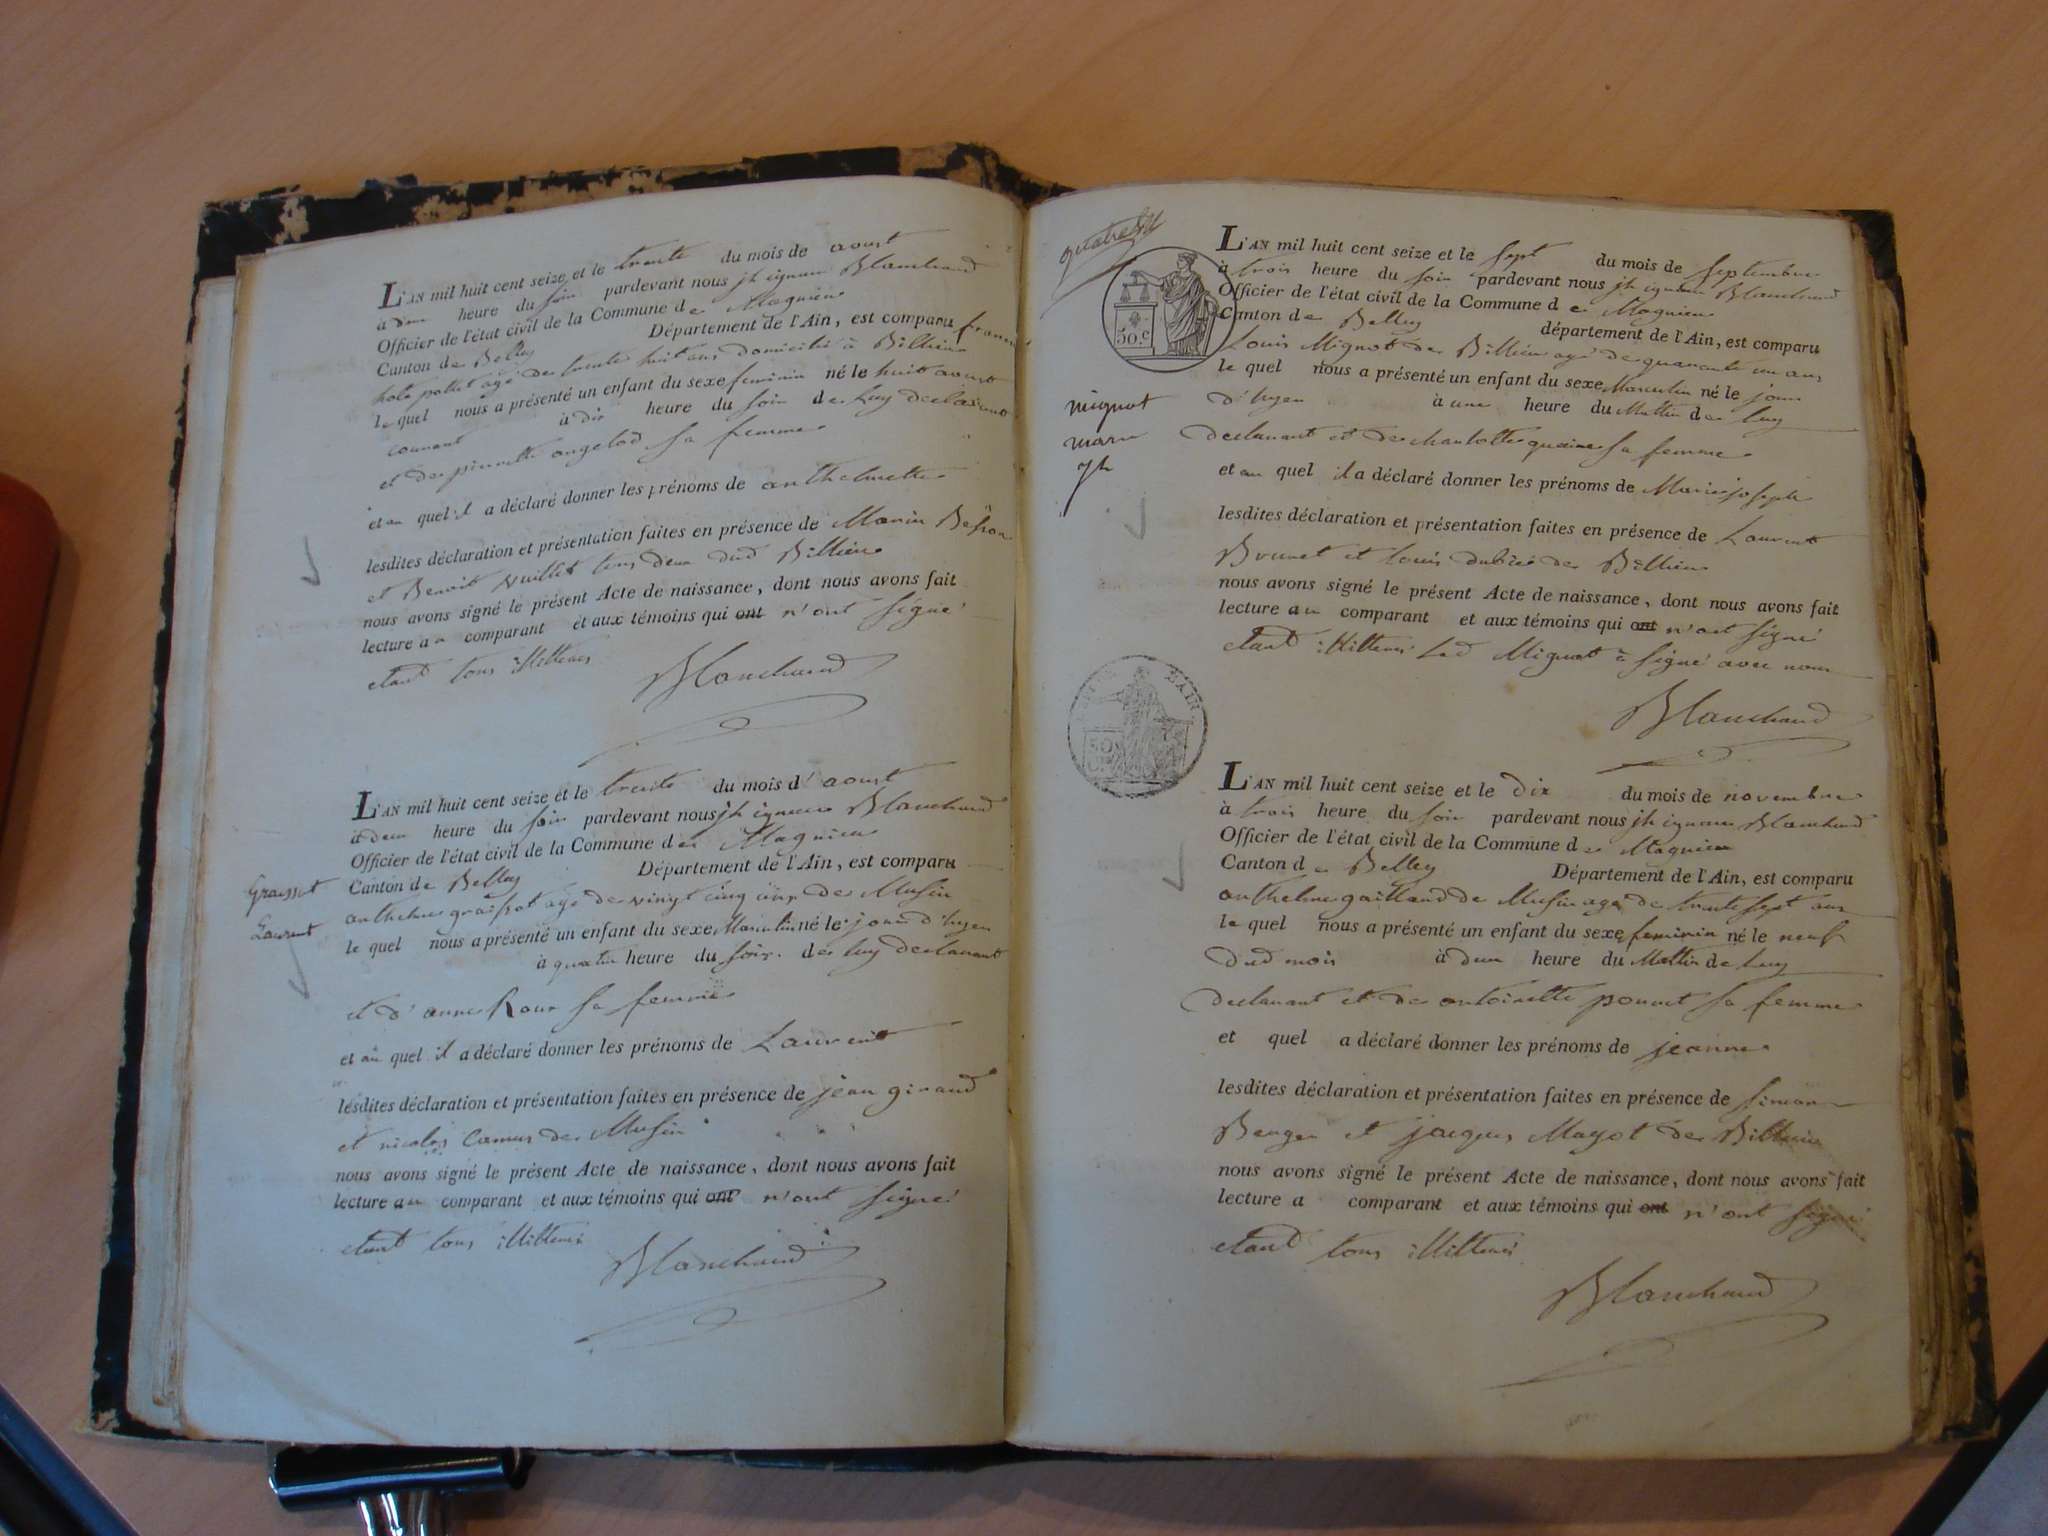 L'AN mil huit cent seize et le trente du mois de aoust
à deux heure du soir pardevant nous jh ignace Blanchard
Officier de l'état civil de la Commune de Magnieu
Canton de Belley Département de l'Ain, est comparu
agé de trente huit ans domicilié à Billieu
le quel nous a présenté un enfant du sexe feminin né le huit aoust
courant à dix heure du soir de luy declarant
et de pierrette sa femme
et au quel il a déclaré donner les prénoms de anthelmette
lesdites déclaration et présentation faites en présence de Marin
et Benoit vuillet tous deux dud Billieu
nous avons signé le présent Acte de naissance, dont nous avons fait
lecture au comparant et aux témoins qui ont n'ont signé
etant tous illitteres
Blanchard
L'AN mil huit cent seize et le trente du mois d'aoust
à deux heure du soir pardevant nous jh ignace Blanchard
Officier de l'état civil de la Commune de Magnieu
Canton de Belley Département de l'Ain, est comparu
Graisset
Laurent
anthelme graisset agé de vingt cinq ans de Musin
le quel nous a présenté un enfant du sexe Masculin né le jour d'hyer
à quatre heure du soir de luy declarant
et d'anne Roux sa femme
et au quel il a déclaré donner les prénoms de Laurent
lesdites déclaration et présentation faites en présence de jean giraud
et nicolas Camus de Musin
nous avons signé le présent Acte de naissance, dont nous avons fait
lecture au comparant et aux témoins qui ont n'ont signé
etant tous illitteres
Blanchard
50.c
L'AN mil huit cent seize et le sept du mois de septembre
à trois heure du soir pardevant nous jh ignace Blanchard
Officier de l'état civil de la Commune de Magnieu
Canton de Belley département de l'Ain, est comparu
Louis Mignot de Billieu agé de quarante un ans
le quel nous a présenté un enfant du sexe Masculin né le jour
d'hyer à une heure du Matin de luy
mignot
marie
jh
declarant et de charlotte sa femme
et au quel il a déclaré donner les prénoms de Marie joseph
lesdites déclaration et présentation faites en présence de Laurent
Brunet et louis de Billieu
nous avons signé le présent Acte de naissance, dont nous avons fait
lecture au comparant et aux témoins qui ont n'ont signé
etant illitteres Led Mignot a signé avec nous
Blanchard
L'AN mil huit cent seize et le dix du mois de novembre
à trois heure du soir pardevant nous jh ignace Blanchard
Officier de l'état civil de la Commune de Magnieu
Canton de Belley Département de l'Ain, est comparu
anthelme gaillard de Musin agé de trente sept ans
le quel nous a présenté un enfant du sexe feminin né le neuf
dud mois à deux heure du Mattin de luy
declarant et de antoinette sa femme
et quel a déclaré donner les prénoms de jeanne
lesdites déclaration et présentation faites en présence de simon
Berger et jacques Mayot de Billieu
nous avons signé le présent Acte de naissance, dont nous avons fait
lecture a comparant et aux témoins qui ont n'ont signé
etant tous illitteres
Blanchard